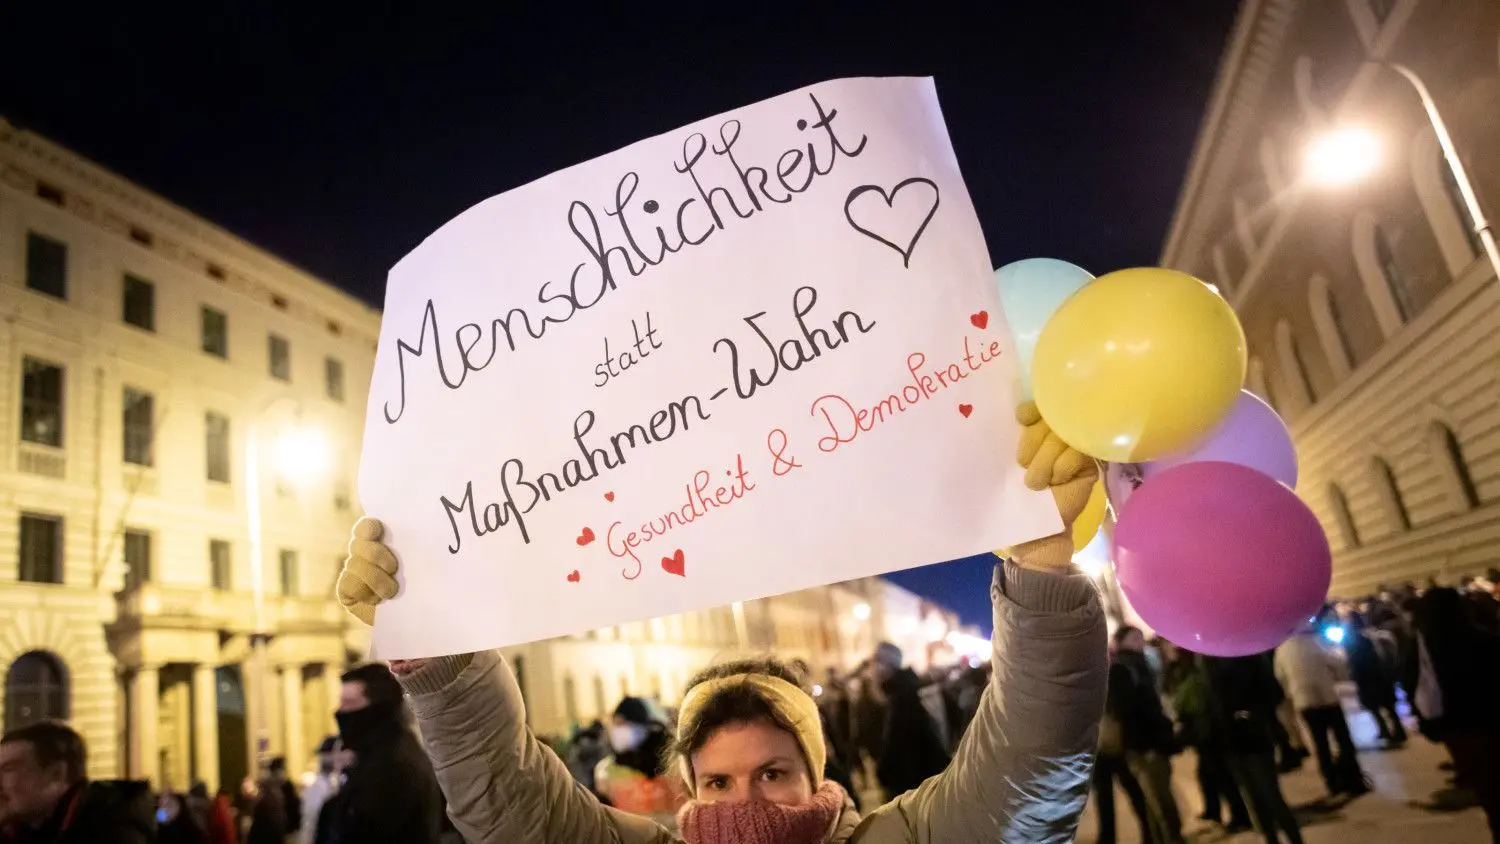 Menschlichkeit
statt
Maßnahmen-Wahn
Gesundheit & Demokratie